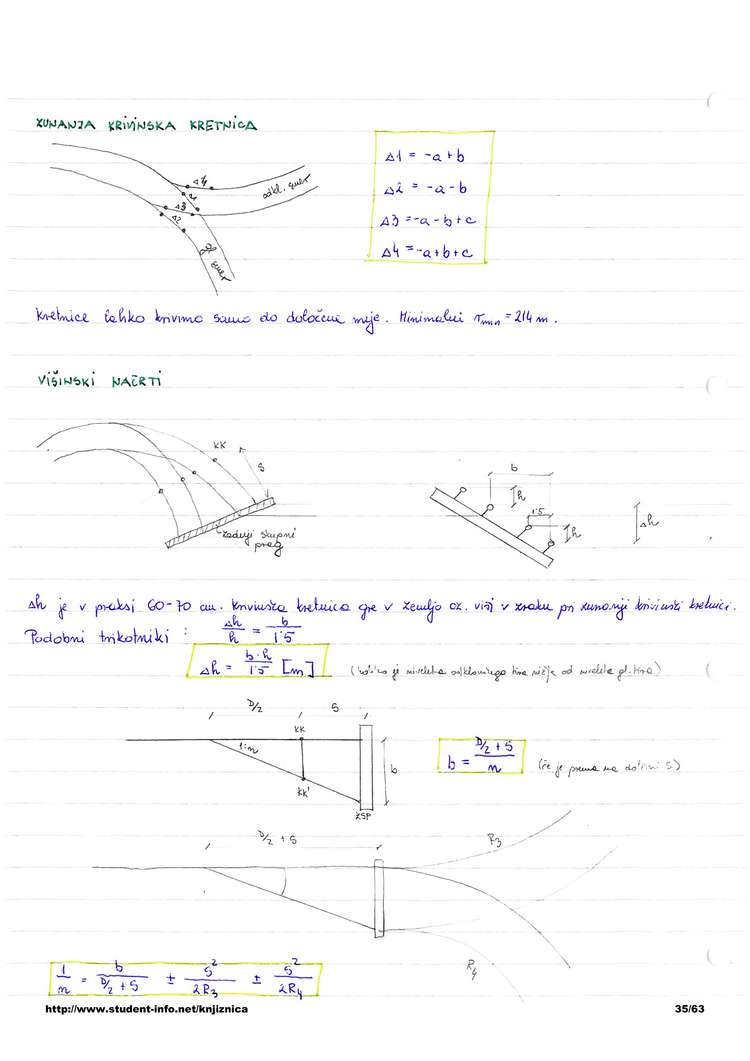 ZUNANJA KRIVINSKA KRETNICA
Δ4
Δ1
Δ3
Δ2
odkl. smer
gl. smer
Δ1 = -a+b
Δ2 = -a-b
Δ3 = -a-b+c
Δ4 = -a+b+c
Kretnice lahko krivimo samo do določene meje. Minimalni rmin = 214 m.
VIŠINSKI NAČRTI
KK
S
zadnji skupni
prag
b
h
1.5
h
Δh
Δh je v praksi 60-70 cm. Krivinska kretnica gre v zemljo oz. visi v zraku pri zunanji krivinski kretnici.
Podobni trikotniki : Δh/h = b/1.5
Δh = b·h/1.5 [m] (koliko je niveleta odklonskega tira nižje od nivelete gl. tira)
D/2 S
KK
1:n
b
KK'
ZSP
b = (D/2 + S)/n (če je prema na dolžini S)
D/2 + S
R3
R4
1/n = b/(D/2 + S) ± S²/2R3 ± S²/2R4
http://www.student-info.net/knjiznica 35/63